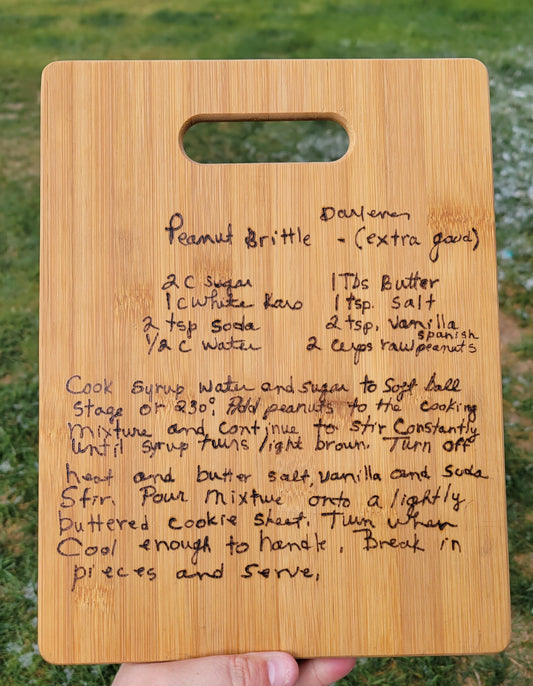 Darlenes
Peanut Brittle - (extra good)
2 C sugar
1 C White Karo
2 tsp soda
1/2 C water
1 Tbs Butter
1 tsp. salt
2 tsp. vanilla
2 cups raw spanish peanuts
Cook syrup water and sugar to soft ball
stage or 230°. Add peanuts to the cooking
mixture and continue to stir constantly
until syrup turns light brown. Turn off
heat and butter salt, vanilla and soda
Stir. Pour mixture onto a lightly
buttered cookie sheet. Turn when
Cool enough to handle. Break in
pieces and serve.